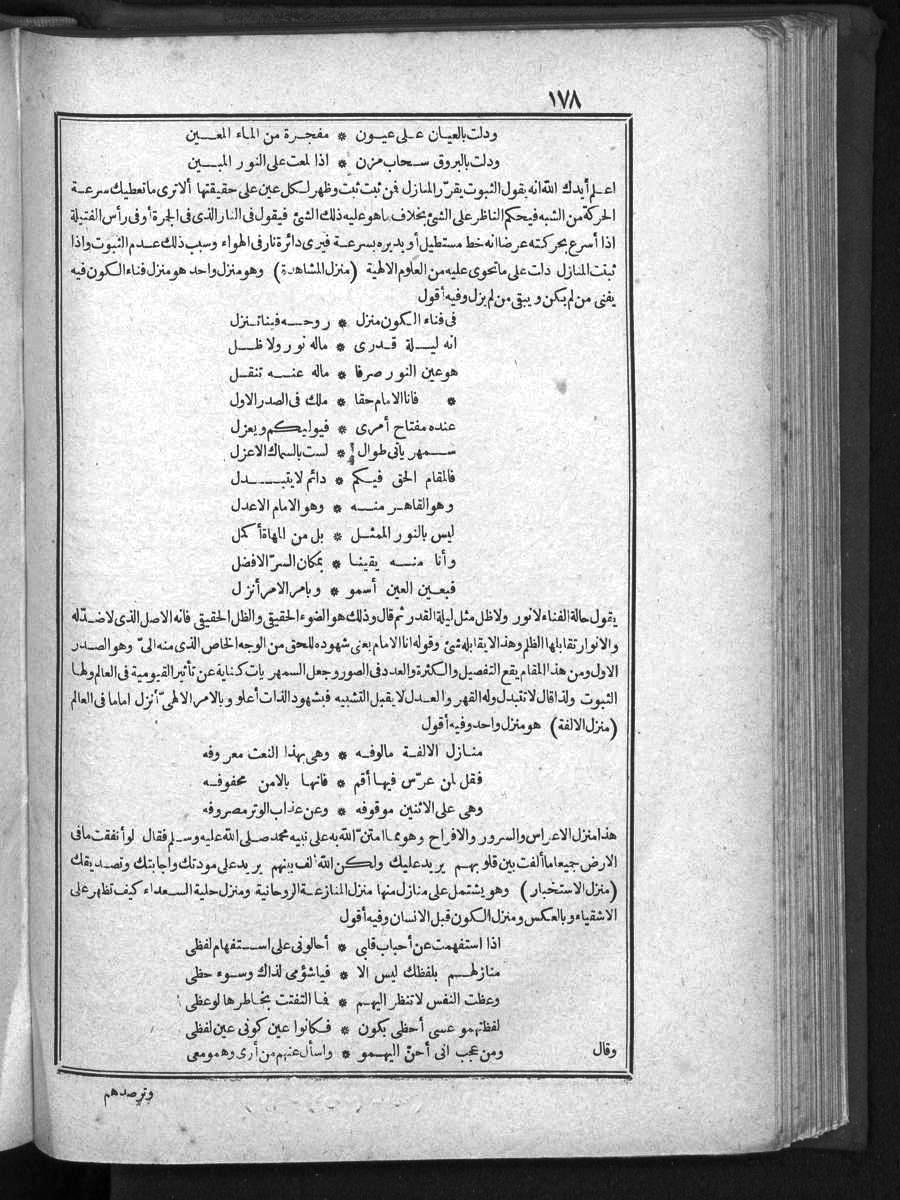 ١٧٨
ودلت بالعيان على عيون * مفجرة من الماء المعين
ودلت بالبروق سحاب مزن * اذا لمعت على النور المبين
اعلم أيدك الله انه يقول الثبوت يقرّر المنازل فمن ثبت ثبت وظهر لكل عين على حقيقتها ألا ترى ما تعطيك سرعة
الحركة من الشبه فيحكم الناظر على الشئ بخلاف ما هو عليه ذلك الشئ فيقول فى النار الذى فى الجمرة أو فى رأس الفتيلة
اذا أسرع بحركته عرضا انه خط مستطيل أو يديره بسرعة فيرى دائرة نار فى الهواء وسبب ذلك عدم الثبوت واذا
ثبتت المنازل دلت على ما تحوى عليه من العلوم الالهية (منزل المشاهدة) وهو منزل واحد هو منزل فناء الكون فيه
يفنى من لم يكن ويبقى من لم يزل وفيه أقول
فى فناء الكون منزل * روحه فينا تنزل
انه ليلة قدرى * ماله نور ولا ظل
هو عين النور صرفا * ماله عنه تنقل
* فانا الامام حقا * ملك فى الصدر الاول
عنده مفتاح أمرى * فيوليكم ويعزل
سمهرياتى طوال * لست بالسماك الاعزل
فالمقام الحق فيكم * دائم لا يتبدل
وهو القاهر منه * وهو الامام الاعدل
ليس بالنور الممثل * بل من المهاة أكمل
وأنا منه يقينا * بمكان السرّ الافضل
فبعين العين أسمو * وبامر الامر أنزل
يقول حالة الفناء لا نور ولا ظل مثل ليلة القدر ثم قال وذلك هو الضوء الحقيقى والظل الحقيقى فانه الاصل الذى لا ضدّ له
والانوار تقابلها الظلم وهذا لا يقابله شئ وقوله انا الامام يعنى شهوده للحق من الوجه الخاص الذى منه الىّ وهو الصدر
الاول ومن هذا المقام يقع التفصيل والكثرة والعدد فى الصور وجعل السمهريات كناية عن تأثير القيومية فى العالم ولها
الثبوت ولذا قال لا تتبدل وله القهر والعدل لا يقبل التشبيه فبشهود الذات أعلو وبالامر الالهىّ أنزل اماما فى العالم
(منزل الالفة) هو منزل واحد وفيه أقول
منازل الالفة مالوفه * وهى بهذا النعت معروفه
فقل لمن عرّس فيها أقم * فانها بالامن محفوفه
وهى على الاثنين موقوفه * وعن عذاب الوتر مصروفه
هذا منزل الاعراس والسرور والافراح وهو مما امتنّ الله به على نبيه محمد صلى الله عليه وسلم فقال لو أنفقت ما فى
الارض جميعا ما ألفت بين قلوبهم يريد عليك ولكن الله ألف بينهم يريد على مودتك واجابتك وتصديقك
(منزل الاستخبار) وهو يشتمل على منازل منها منزل المنازعة الروحانية ومنزل حلية السعداء كيف تظهر على
الاشقياء وبالعكس ومنزل الكون قبل الانسان وفيه أقول
اذا استفهمت عن أحباب قلبى * أحالونى على استفهام لفظى
منازلهم بلفظك ليس الا * فياشؤمى لذاك وسوء حظى
وعظت النفس لا تنظر اليهم * فما التفتت بخاطرها لوعظى
لفظتهمو عسى أحظى بكون * فكانوا عين كونى عين لفظى
وقال ومن عجب انى أحنّ اليهمو * واسأل عنهم من أرى وهمو معى
وترصدهم